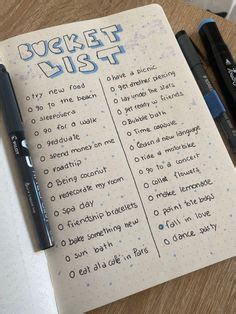 BUCKET
LIST
try new road
go to the beach
sleepovers
go for a walk
graduate
spend money on me
roadtrip
Being coconut
redecorate my room
spa day
friendship bracelets
bake something new
sun bath
eat at a café in Paris
have a picnic
get another piercing
lay under the stars
get ready w friends
Bubble bath
Time capsule
Learn a new language
ride a motorbike
go to a concert
collect flowers
make lemonade
paint tote bags
fall in love
dance party